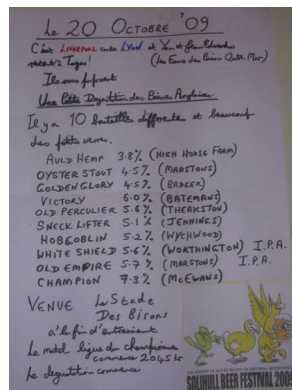 Le 20 Octobre '09
C'est LIVERPOOL contre LYON et Yan et Jean Edwards
(Les Fans des Bières Outre Mer)
Ils vous proposent
Une Petite Degustation des Bières Anglaises.
Il y a 10 bouteilles differente et beaucoup
des petits verres.
AULD HEMP 3.8% (HIGH HOUSE FARM)
OYSTER STOUT 4.5% (MARSTONS)
GOLDEN GLORY 4.5% (BADGER)
VICTORY 6.0% (BATEMANS)
OLD PERCULIER 5.6% (THEAKSTON)
SNECK LIFTER 5.1% (JENNINGS)
HOBGOBLIN 5.2% (WYCHWOOD)
WHITE SHIELD 5.6% (WORTHINGTON) I.P.A.
OLD EMPIRE 5.7% (MARSTONS) I.P.A.
CHAMPION 7.3% (McEWANS)
VENUE Le Stade
Des Bisons
a le fin d'entrainement.
Le match ligue du championes
commence 2045 hr
Le degustation commence
SOLIHULL BEER FESTIVAL 200